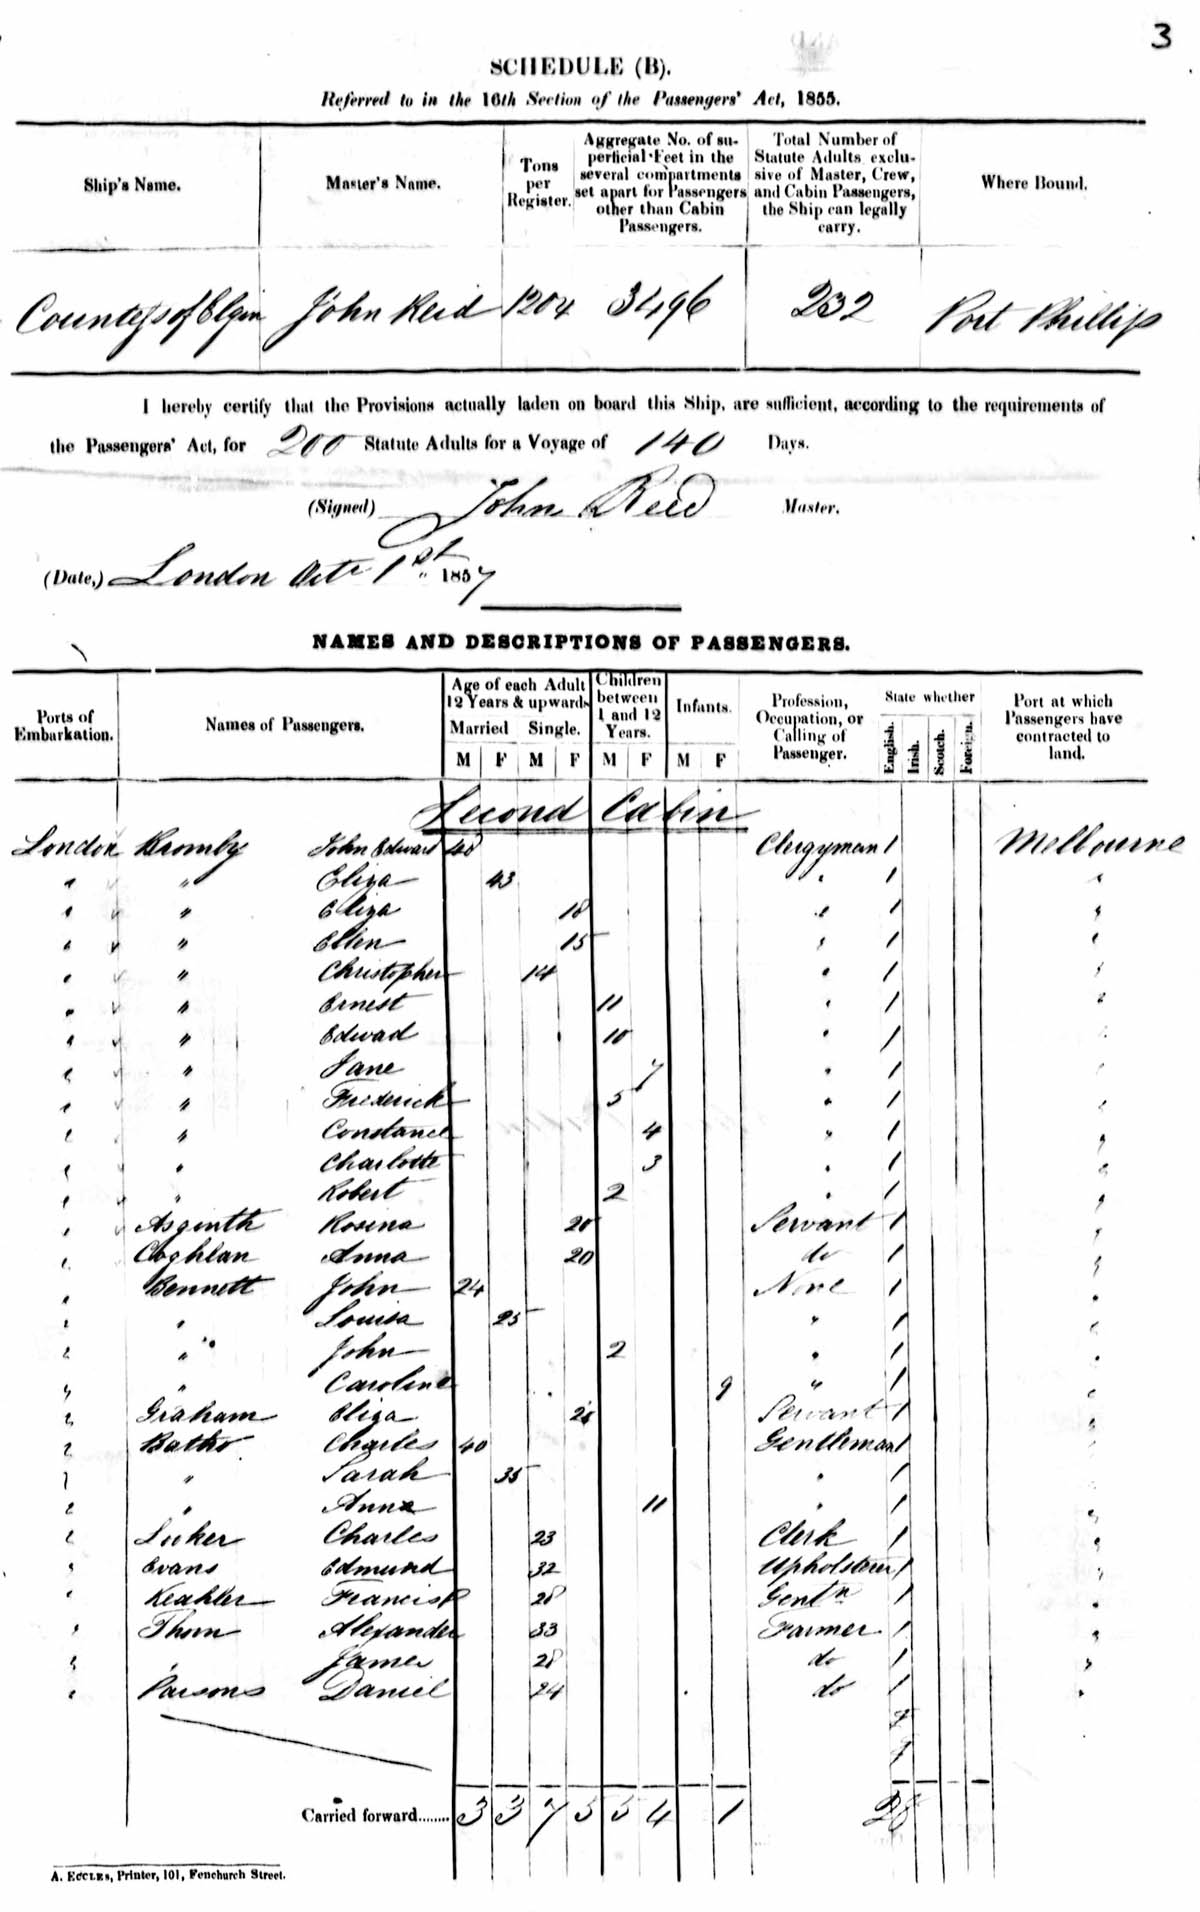 3
SCHEDULE (B).
Referred to in the 16th Section of the Passengers' Act, 1855.
Ship's Name. Master's Name. Tons per Register. Aggregate No. of superficial Feet in the several compartments set apart for Passengers other than Cabin Passengers. Total Number of Statute Adults exclusive of Master, Crew, and Cabin Passengers, the Ship can legally carry. Where Bound.
Countess of Elgin John Reid 1204 3496 232 Port Phillip
I hereby certify that the Provisions actually laden on board this Ship, are sufficient, according to the requirements of
the Passengers' Act, for 200 Statute Adults for a Voyage of 140 Days.
(Signed) John Reid Master.
(Date,) London Octr 1st 1857
NAMES AND DESCRIPTIONS OF PASSENGERS.
Ports of Embarkation. Names of Passengers. Age of each Adult 12 Years & upwards Married Single. Children between 1 and 12 Years. Infants. Profession, Occupation, or Calling of Passenger. State whether English. Irish. Scotch. Foreign. Port at which Passengers have contracted to land.
M F M F M F M F
Second Cabin
London Bromby John Edward 48 Clergyman 1 Melbourne
" " Eliza 43 " 1 "
" " Eliza 18 " 1 "
" " Ellen 15 " 1 "
" " Christopher 14 " 1 "
" " Ernest 11 " 1 "
" " Edwad 10 " 1 "
" " Jane 7 " 1 "
" " Frederick 5 " 1 "
" " Constance 4 " 1 "
" " Charlotte 3 " 1 "
" " Robert 2 " 1 "
" Rosina 20 Servant 1 "
" Coghlan Anna 20 do 1 "
" Bennett John 24 None 1 "
" " Louisa 25 " 1 "
" " John 2 " 1 "
" " Caroline 9 " 1 "
" Graham Eliza Servant 1 "
" Batho Charles 40 Gentleman 1 "
" " Sarah 35 " 1 "
" " Anna 11 " 1 "
" Luker Charles 23 Clerk 1 "
" Evans Edmund 32 Upholsterer 1 "
" Keahler Francis 28 Gentn 1 "
" Thorn Alexander 33 Farmer 1 "
" James 28 do 1 "
" Parsons Daniel 24 do 1 "
Carried forward........ 3 3 7 5 5 4 1 28
A. ECCLES, Printer, 101, Fenchurch Street.